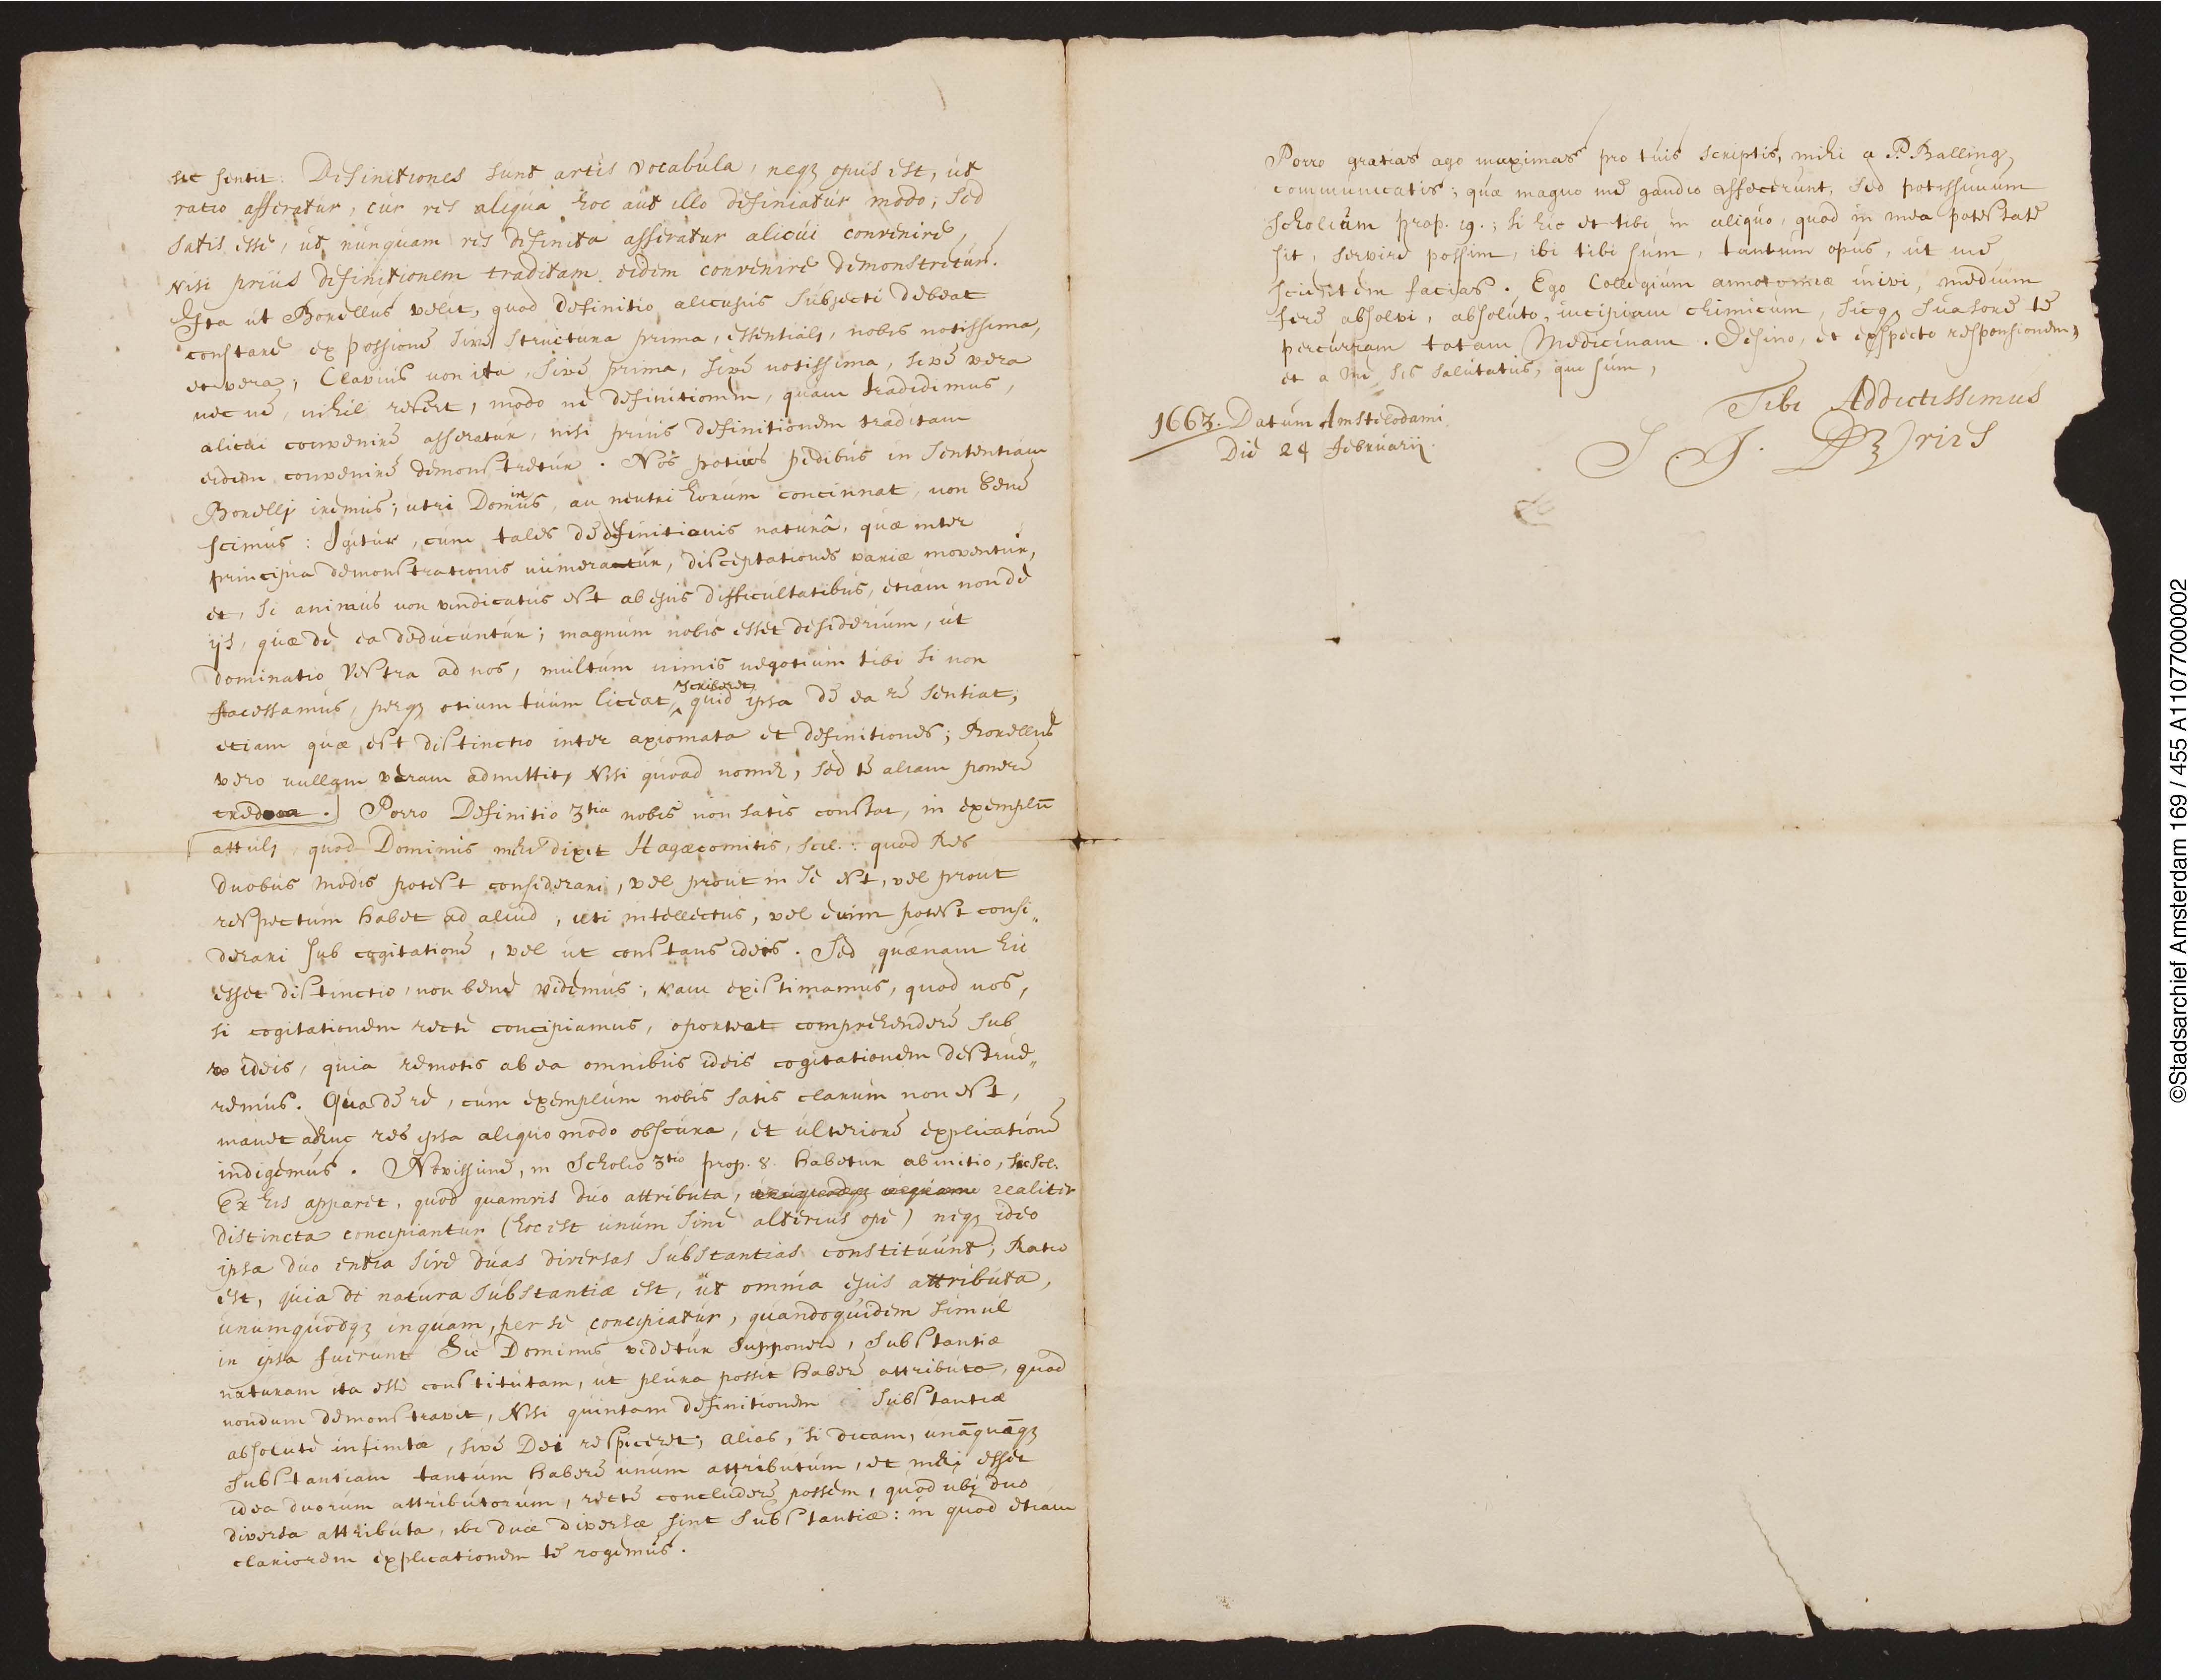 sic sentit. Definitiones sunt artis vocabula, neqȝ opus est, ut
ratio afferatur, cur res aliqua hoc aut illo definiatur modo; sed
satis esse, ut nunquam res definita asseratur alicui convenire,
nisi prius definitionem traditam eidem convenire demonstretur.
Ita ut Borellus velit, quod definitio alicujus subjecti debeat
constare ex possione sive structura prima, essentiali, nobis notissima,
et vera; Clavius non ita, sive prima, sive notissima, sive vera
nec ne, nihil refert, modo ne definitionem, quam tradidimus,
alicui convenire asseratur, nisi prius definitionem traditam
eidem convenire demonstretur. Nos potius pedibus in sententiam
Borelly iremus; utri Dominus, an neutri horum concinnat, non bene
scimus: Igitur, cum tales de definitionis naturâ, quæ inter
principia demonstrationis numeratur, disceptationes variæ moventur,
et, si animus non vindicatus est ab ejus difficultatibus, etiam non de
ijs, quæ de ea deducuntur; magnum nobis esset desiderium, ut
Dominatio Vestra ad nos, multum nimis negotium tibi si non
facessamus, perqȝ otium tuum liceat, scriberet, quid ipsa de ea re sentiat;
etiam quæ est distinctio inter axiomata et definitiones; Borellus
vero nullam veram admittit, Nisi quoad nomen, sed te aliam ponere
credo. Porro Definitio 3tia nobis non satis constat, in exemplū
attuli, quod Dominus mihi dixit Hagæcomitis, scil.: quod Res
duobus modis potest considerari, vel prout in se est, vel prout
respectum habet ad aliud, uti intellectus, vel enim potest consi„
derari sub cogitatione, vel ut constans ideis. Sed quænam hic
esset distinctio, non bene videmus; nam existimamus, quod nos,
si cogitationem recte concipiamus, oporteat comprehendere sub
ideis, quia remotis ab ea omnibus ideis cogitationem destrue„
remus. Qua de re, cum exemplum nobis satis clarum non est,
manet adhuc res ipsa aliquo modo obscura, et ulteriore explicatione
indigemus. Novissime, in Scholio 3tio prop. 8. habetur ab initio, sic scl.
Ex his apparet, quod quamvis duo attributa, realiter
distincta concipiantur (hoc est unum sine alterius ope) neqȝ ideo
ipsa duo entia sive duas diversas substantias constituunt; Ratio
est, quia de natura substantiæ est, ut omnia ejus attributa,
unumquodqȝ inquam, per se concipiatur, quandoquidem simul
in ipsa fuerunt Sic Dominus videtur supponere, substantiæ
naturam ita esse constitutam, ut plura possit habere attributa, quod
nondum demonstravit, Nisi quintam definitionem substantiæ
absolute infinitæ, sive Dei respiceret; alias, si dicam, unāquāqȝ
substantiam tantum habere unum attributum, et mihi esset
idea duorum attributorum, recte concludere possem, quod ubi duo
diversa attributa, ibi duæ diversæ sint substantiæ: in quod etiam
clariorem explicationem te rogemus.
Porro gratias ago maximas pro tuis scriptis, mihi a P. Balling,
communicatis; quæ magno me gaudio affecerunt, sed potissimum
Scholium prop. 19.; si hic et tibi in aliquo, quod in mea potestate
sit, servire possim, ibi tibi sum, tantum opus, ut me
scientem facias. Ego Collegium anatomiæ inivi, medium
fere absolvi, absoluto, incipiam chimicum, sicqȝ suasore te
percurram totam Medicinam. Desino, et expecto responsionem,
et a me sis salutatus, qui sum,
Tibi Addictissimus
S. J. D Vries
1663. Datum Amstelodami
Die 24 Februarij.
©Stadsarchief Amsterdam 169 / 455 A11077000002